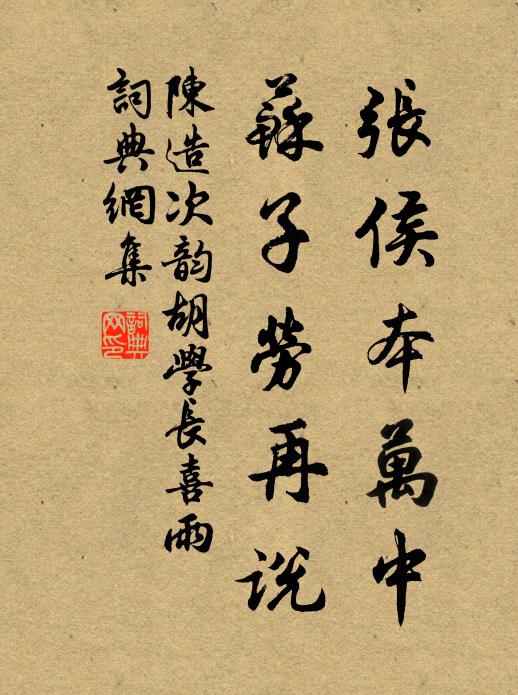 張侯本萬中
蘇子勞再説
陳造次韵胡學長喜雨
詞典網集
詞典
网印